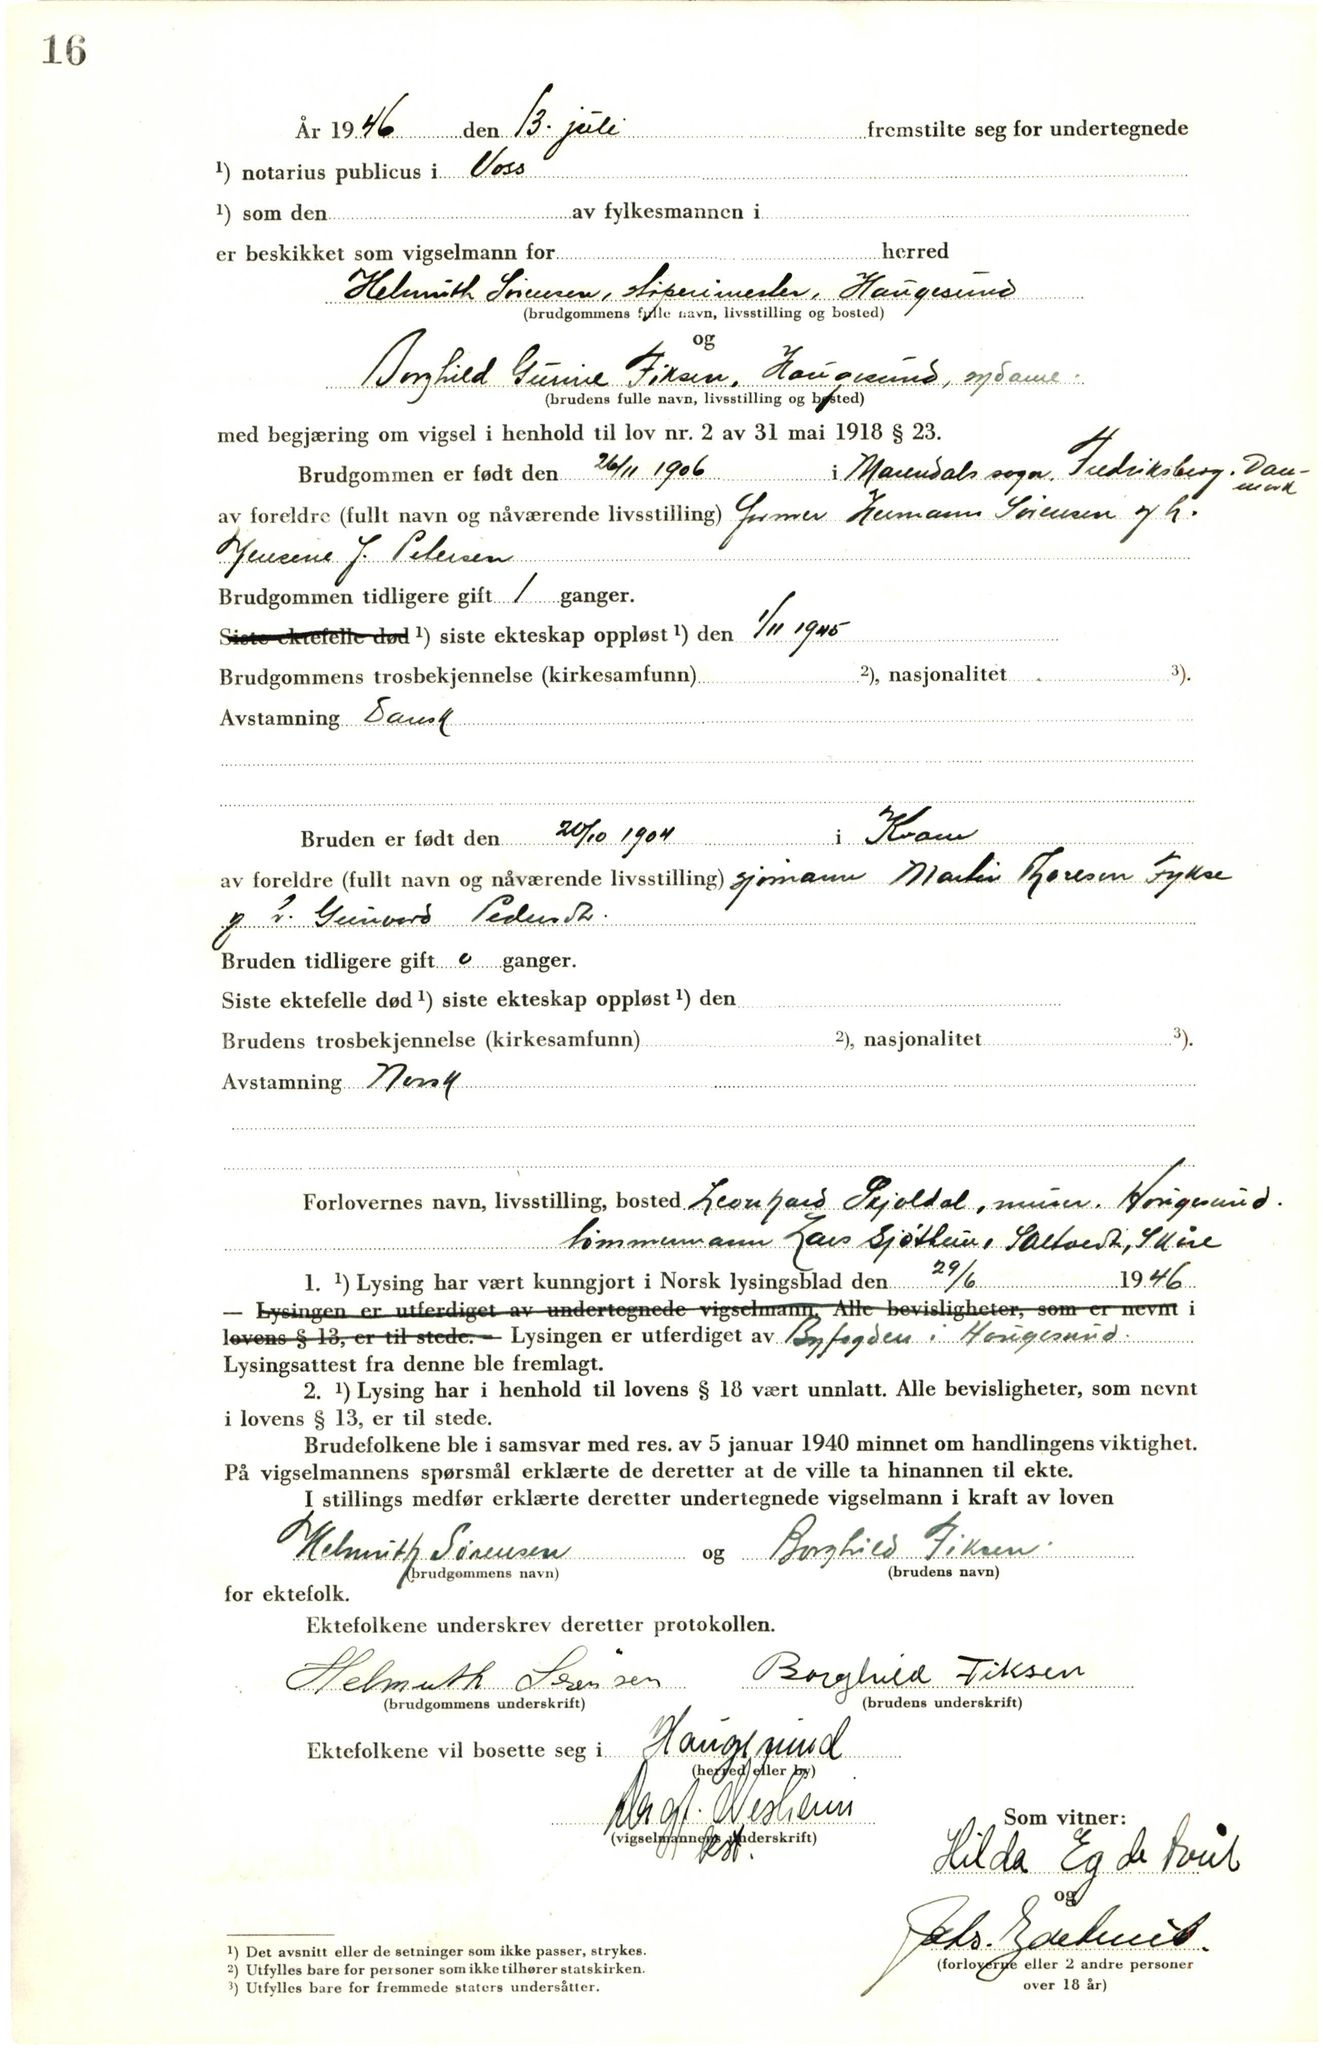 16
År 1946 den 13. juli fremstilte seg for undertegnede
¹) notarius publicus i Voss
¹) som den av fylkesmannen i
er beskikket som vigselmann for herred
Helmuth Sørensen, støperimester, Haugesund
(brudgommens fulle navn, livsstilling og bosted)
og
Borghild Gunnie Fiksen, Haugesund, sydame.
(brudens fulle navn, livsstilling og bosted)
med begjæring om vigsel i henhold til lov nr. 2 av 31 mai 1918 § 23.
Brudgommen er født den 26/11 1906 i sogn, Fredriksberg. Dan-
mark
av foreldre (fullt navn og nåværende livsstilling) Hermann Sørensen og h.
Jensene J. Petersen
Brudgommen tidligere gift 1 ganger.
Siste ektefelle død ¹) siste ekteskap oppløst ¹) den 1/11 1945
Brudgommens trosbekjennelse (kirkesamfunn) ²), nasjonalitet ³).
Avstamning Dansk
Bruden er født den 20/10 1904 i Kvam
av foreldre (fullt navn og nåværende livsstilling) sjømann Martin Thoresen Fykse
og h. Gunvord Pedersdtr.
Bruden tidligere gift 0 ganger.
Siste ektefelle død ¹) siste ekteskap oppløst ¹) den
Brudens trosbekjennelse (kirkesamfunn) ²), nasjonalitet ³).
Avstamning Norsk
Forlovernes navn, livsstilling, bosted Leonhard Skjoldal, murer. Haugesund.
tømmermann Lars Sjøthun, Saltvedt, Skåre
1. ¹) Lysing har vært kunngjort i Norsk lysingsblad den 29/6 1946
— Lysingen er utferdiget av undertegnede vigselmann. Alle bevisligheter, som er nevnt i
lovens § 13, er til stede. — Lysingen er utferdiget av Byfogden i Haugesund.
Lysingsattest fra denne ble fremlagt.
2. ¹) Lysing har i henhold til lovens § 18 vært unnlatt. Alle bevisligheter, som nevnt
i lovens § 13, er til stede.
Brudefolkene ble i samsvar med res. av 5 januar 1940 minnet om handlingens viktighet.
På vigselmannens spørsmål erklærte de deretter at de ville ta hinannen til ekte.
I stillings medfør erklærte deretter undertegnede vigselmann i kraft av loven
Helmuth Sørensen og Borghild Fiksen.
(brudgommens navn) (brudens navn)
for ektefolk.
Ektefolkene underskrev deretter protokollen.
Helmuth Sørensen Borghild Fiksen
(brudgommens underskrift) (brudens underskrift)
Ektefolkene vil bosette seg i Haugesund
(herred eller by)
(vigselmannens underskrift)
Som vitner:
Hilda Egdetveit
og
(forloverne eller 2 andre personer
over 18 år)
¹) Det avsnitt eller de setninger som ikke passer, strykes.
²) Utfylles bare for personer som ikke tilhører statskirken.
³) Utfylles bare for fremmede staters undersåtter.